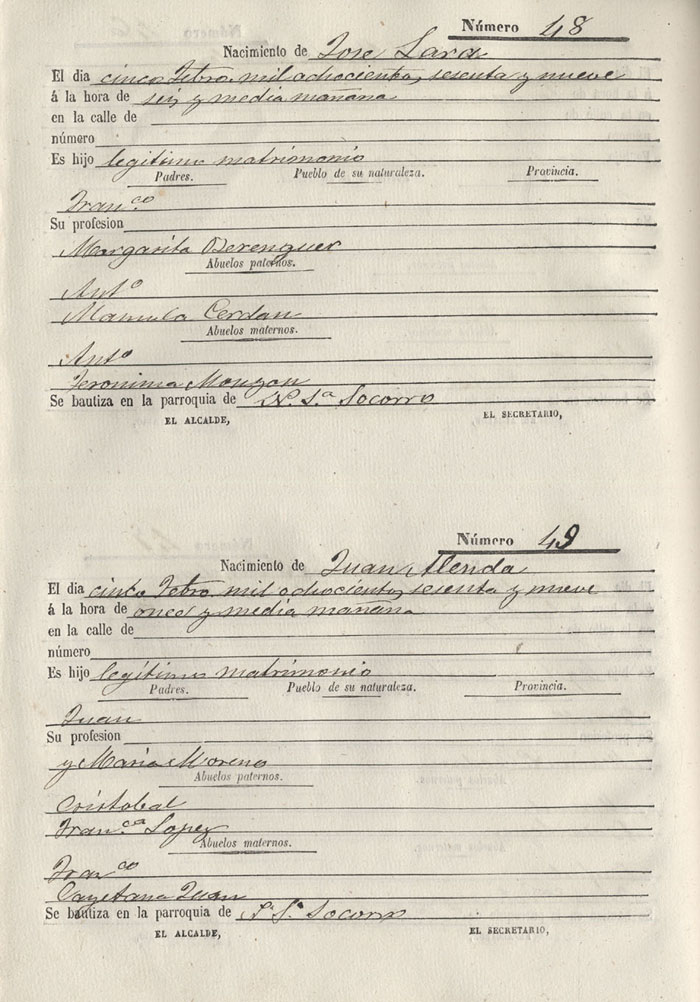 Número 48
Nacimiento de Jose Lara
El dia cinco Febro. mil ochocientos sesenta y nueve
á la hora de seis y media mañana
en la calle de
número
Es hijo legitimo matrimonio
Padres. Pueblo de su naturaleza. Provincia.
Fran.co
Su profesion
Margarita Berenguer
Abuelos paternos.
Ant.o
Manuela Cerdan
Abuelos maternos.
Ant.o
Jeronima Monzon
Se bautiza en la parroquia de N. S.a Socorro
EL ALCALDE, EL SECRETARIO,
Número 49
Nacimiento de Juan Alenda
El dia cinco Febro. mil ochocientos sesenta y nueve
á la hora de once y media mañana
en la calle de
número
Es hijo legítimo matrimonio
Padres. Pueblo de su naturaleza. Provincia.
Juan
Su profesion
y Maria Moreno
Abuelos paternos.
Cristobal
Fran.ca Lopez
Abuelos maternos.
Fran.co
Cayetana Juan
Se bautiza en la parroquia de N. S.a Socorro
EL ALCALDE, EL SECRETARIO,